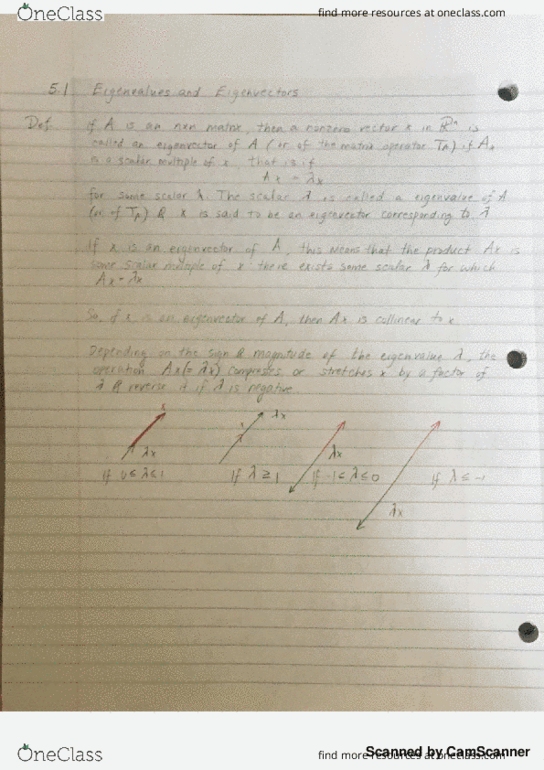 OneClass
find more resources at oneclass.com
5.1 Eigenvalues and Eigenvectors
Def. if A is an nxn matrix, then a nonzero vector x in Rⁿ is
called an eigenvector of A (or of the matrix operator T_A) if Ax
is a scalar multiple of x, that is if
Ax = λx
for some scalar λ. The scalar λ is called a eigenvalue of A
(or of T_A) & x is said to be an eigenvector corresponding to λ
If x is an eigenvector of A, this means that the product Ax is
some scalar multiple of x there exists some scalar λ for which
Ax = λx
So, if x is an eigenvector of A, then Ax is collinear to x
Depending on the sign & magnitude of the eigenvalue λ, the
operation Ax(= λx) compresses or stretches x by a factor of
λ & reverse if λ is negative.
x
λx
x
λx
λx
λx
if 0≤λ≤1
if λ≥1
if -1≤λ≤0
if λ≤-1
OneClass
find more resources at oneclass.com
Scanned by CamScanner